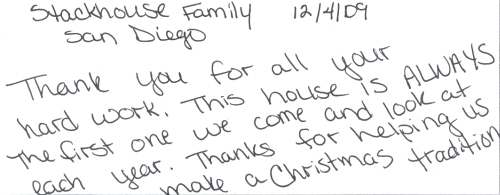 Stackhouse Family 12/4/09
San Diego
Thank you for all your
hard work. This house is ALWAYS
the first one we come and look at
each year. Thanks for helping us
make a Christmas tradition